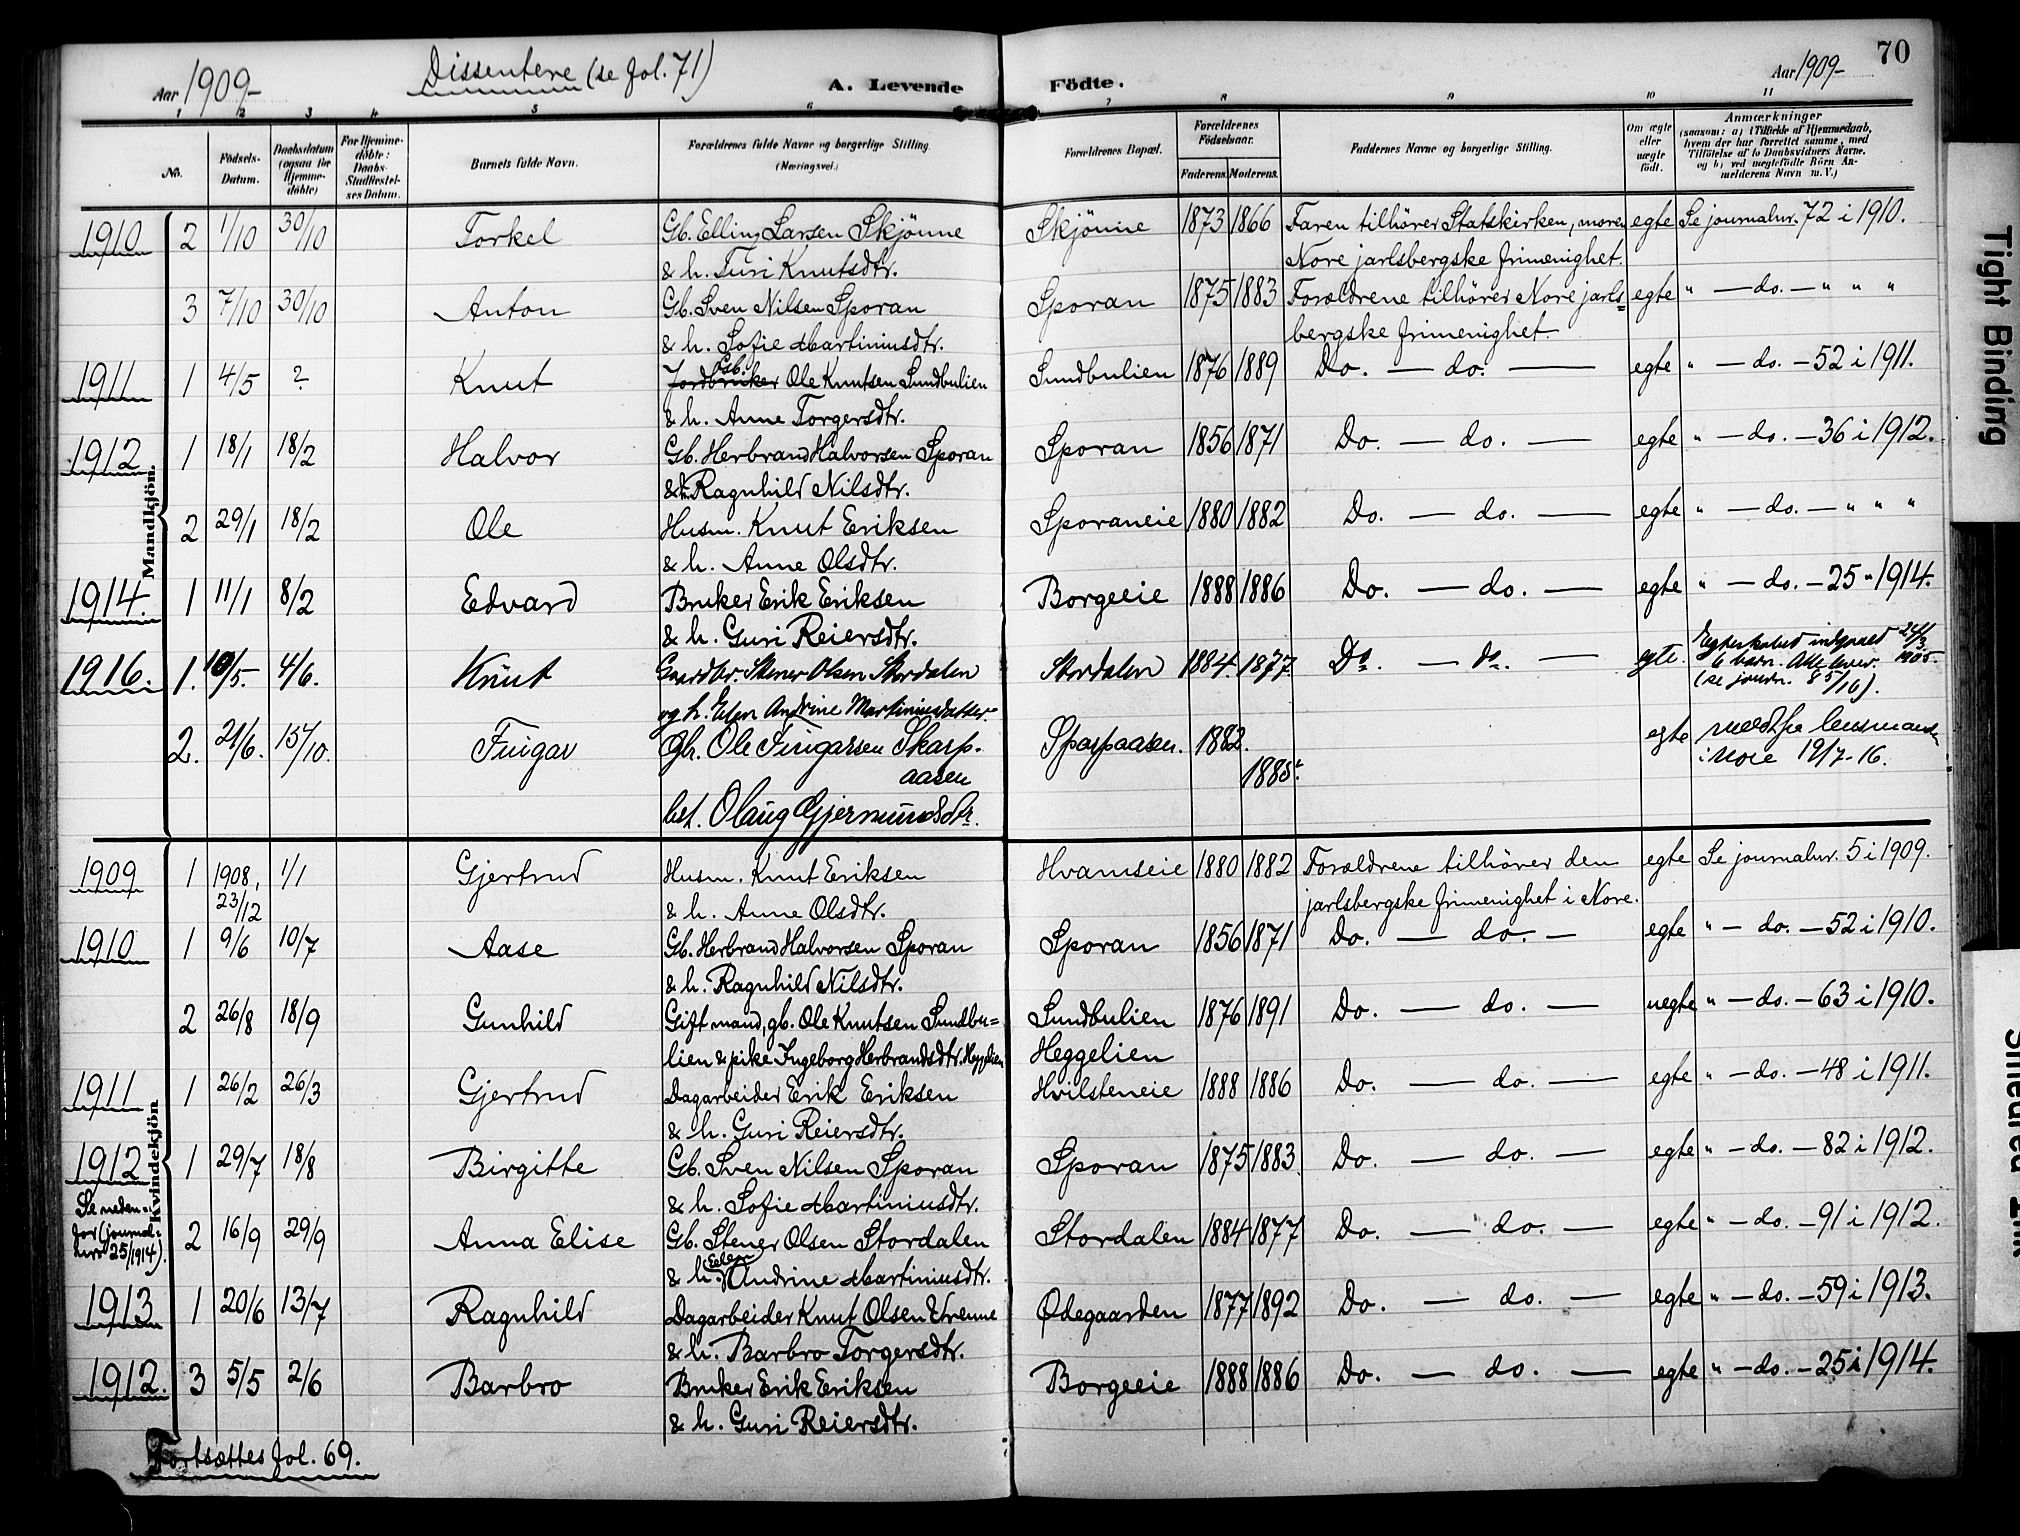 Aar 1909-
Dissentere (se fol. 71)
A. Levende Födte.
Aar 1909-
70
1 2 3 4 5 6 7 8 9 10 11
No.
Födsels-Datum.
Daabsdatum (ogsaa for Hjemme-döbte)
For Hjemme-döbte: Daabs-Stadfæstel-ses Datum.
Barnets fulde Navn.
Forældrenes fulde Navne og borgerlige Stilling. (Næringsvei.)
Forældrenes Bopæl.
Forældrenes Födselsaar.
Faderens. Moderens.
Faddernes Navne og borgerlige Stilling.
Om ægte eller uægte födt.
Anmærkninger
(saasom: a) i Tilfælde af Hjemmedaab, hvem der har forrettet samme, med Tilföielse af to Daabsvidners Navne. og b) ved uægtefödte Börn An-melderens Navn m. V.)
Mandkjön.
1910 2 1/10 30/10 Torkel Gb. Elling Larsen Skjönne Skjönne 1873 1866 Faren tilhörer Statskirken, moren egte Se journalnr. 72 i 1910.
& h. Turi Knutsdtr. Nore jarlsbergske frimenighet.
3 7/10 30/10 Anton Gb. Sven Nilsen Sporan Sporan 1875 1883 Forældrene tilhörer Nore jarls= egte " — do. — " " "
& h. Sofie Martiniusdtr. bergske frimenighet.
Gb.
1911 1 4/5 ? Knut Jordbruker Ole Knutsen Sundbulien Sundbulien 1876 1889 Do. — do. — egte " — do. — 52 i 1911.
& h. Anne Torgersdtr.
1912 1 18/1 18/2 Halvor Gb. Herbrand Halvorsen Sporan Sporan 1856 1871 Do. — do. — egte " — do. — 36 i 1912.
& h. Ragnhild Nilsdtr.
2 29/1 18/2 Ole Husm. Knut Eriksen Sporaneie 1880 1882 Do. — do. — egte " — do. — " " "
& h. Anne Olsdtr.
1914. 1 11/1 8/2 Edvard Bruker Erik Eriksen Borgeeie 1888 1886 Do. — do. — egte " — do. — 25 " 1914.
& h. Guri Reiersdtr.
1916. 1. 10/5. 4/6. Knut Gaardbr. Stener Olsen Stordalen Stordalen 1884. 1877. Do. — do. — egte. Egteskabed indgaaed 24/3 1905.
6 børn. Alle lever.
(se journ. 85/16).
og h. Elen Andrine Martiniusdatter.
2. 21/6. 15/10. Fingar Gbr. Ole Fingarsen Skarp- 1882. egte
aasen 1885.
i Nore 19/7-16.
bet. Olaug Gjermundsdtr.
Kvindekjön
1909 1 1908, 23/12 1/1 Gjertrud Husm. Knut Eriksen Hvamseie 1880 1882 Forældrene tilhörer den egte Se journalnr. 5 i 1909.
& h. Anne Olsdtr. jarlsbergske frimenighet i Nore.
1910 1 9/6 10/7 Aase Gb. Herbrand Halvorsen Sporan Sporan 1856 1871 Do. — do. — egte " — do. — 52 i 1910.
& h. Ragnhild Nilsdtr.
2 26/8 18/9 Gunhild Gift mand, gb. Ole Knutsen Sundbu= Sundbulien 1876 1891 Do. — do. — uegte " — do. — 63 i 1910.
lien & pike Ingeborg Herbrandsdtr. Heggelien Heggelien
1911 1 26/2 26/3 Gjertrud Dagarbeider Erik Eriksen Hvilsteneie 1888 1886 Do. — do. — egte " — do. — 48 i 1911.
& h. Guri Reiersdtr.
1912 1 29/7 18/8 Birgitte Gb. Sven Nilsen Sporan Sporan 1875 1883. Do. — do. — egte " — do. — 82 i 1912.
& h. Sofie Martiniusdtr.
Se neden-for (journal-nurr 25/1914).
2 16/9 29/9 Anna Elise Gb. Stener Olsen Stordalen Stordalen 1884 1877 Do. — do. — egte " — do. — 91 i 1912.
& h. Eelen Andrine Martiniusdtr.
1913 1 20/6 13/7 Ragnhild Dagarbeider Knut Olsen Ödegaarden 1877 1892 Do. — do. — egte " — do. — 59 i 1913.
& h. Barbro Torgersdtr.
1912. 3 5/5 2/6 Barbro Bruker Erik Eriksen Borgeeie 1888 1886 Do. — do. — egte " — do. — 25 i 1914.
& h. Guri Reiersdtr.
Fortsættes fol. 69.
Tight Binding
Smeared Ink